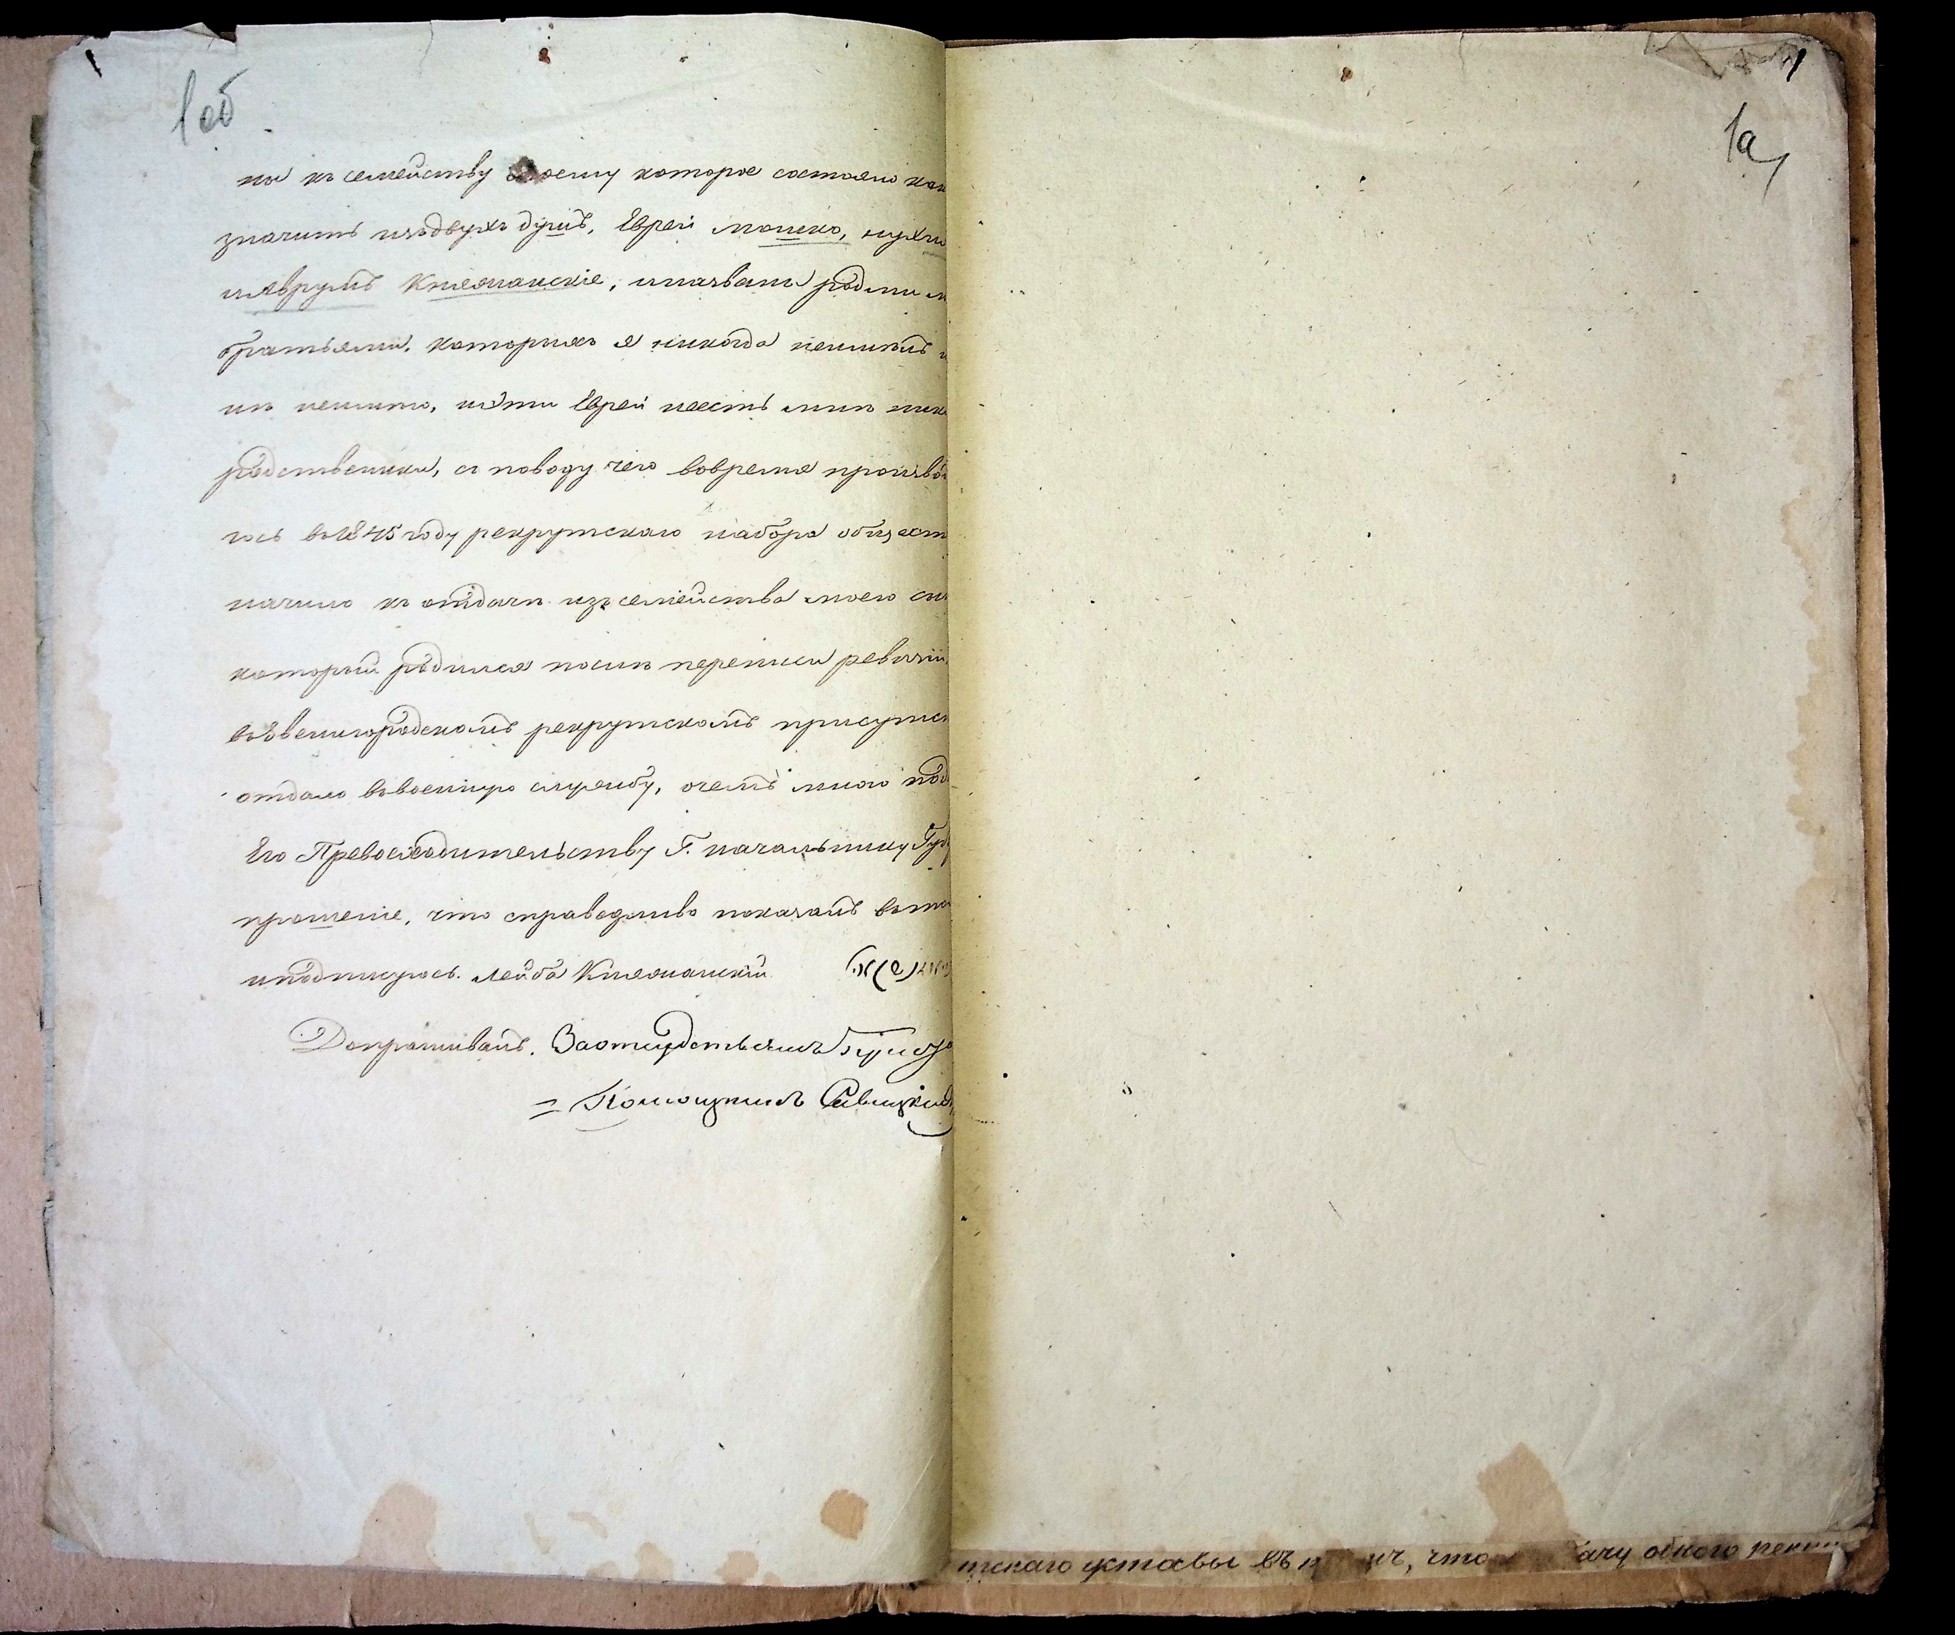 1об
ны къ семейству моему которое состояло как
значитъ изъ двухъ душъ, Еврей Мошко, Нухим
и Аврумъ Княжанскіе, и назвати родными
братьями, которыхъ я никогда неимѣлъ и
не имѣю, и эти Еврей несть мнѣ
родственики, а поводу чего вовремя произво
гось въ 1845 году рекрутскаго набора общест
начило къ отдачи изъ семейства моего сы
который родился посли переписи ревизіи,
въ Звенигородскомъ рекрутскомъ присутст
отдало въ военную службу, очемъ мною под
Его Превосходительству Г. начальнику Губ
прошеніе, что справедливо показалъ въ том
и подпишусь. Лейба Княжанскій
Допрашивалъ. За
= Помощникъ Савицкій
1а
тскаго уставы въ что ачу одного